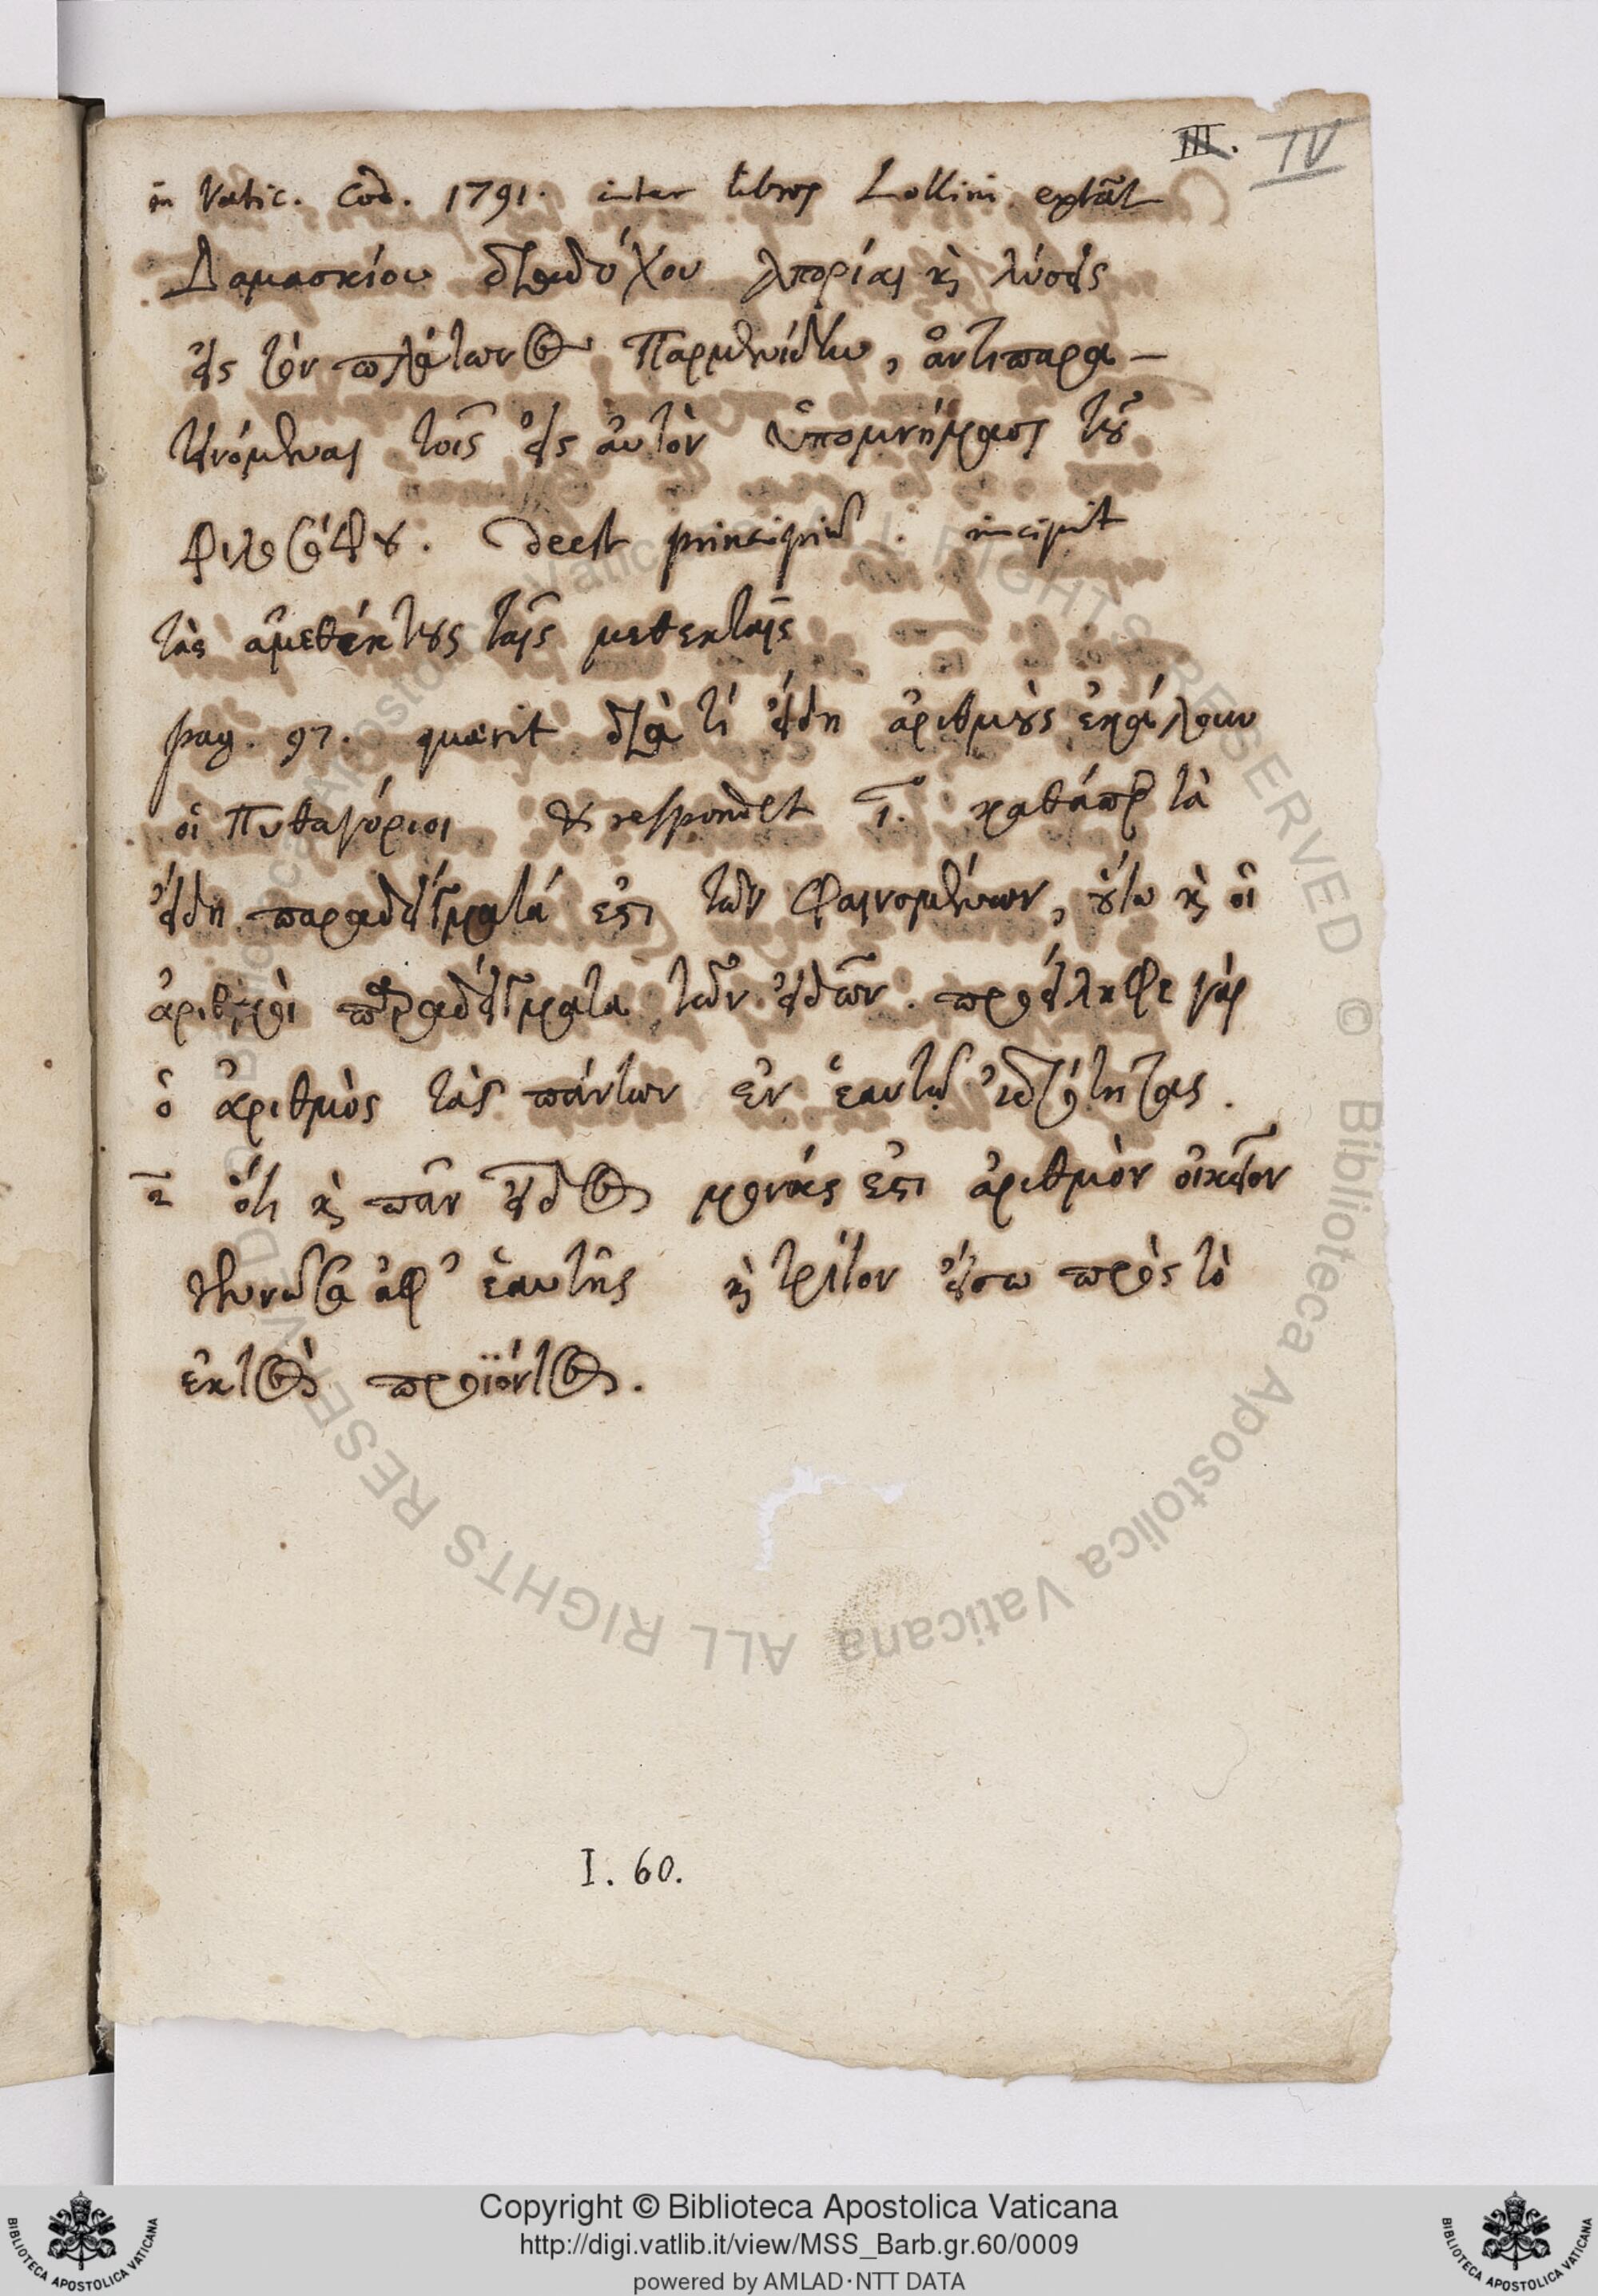 III. IV
in Vatic. Cod. 1791. inter libros Lollini extāt
Δαμασκίου διαδόχου ἀπορίαι κὶ λύσεις
εἰς τὸν πλάτωνος Παρμενίδην, ἀντιπαρα–
τεινόμεναι τοῖς εἰς αὐτὸν ὑπομνήμασι τοῦ
φιλοσόφου. deest principiū. incipit
τὰς ἀμεθέκτους ταῖς μεθεκταῖς
pag. 97. quærit διὰ τί εἴδη ἀριθμοὺς ἐκάλουν
οἱ Πυθαγόριοι & respondet 1. καθάπερ τὰ
εἴδη παραδείγματά ἐστι τῶν φαινομένων, οὕτω κὶ οἱ
ἀριθμοὶ παραδείγματα τῶν εἰδῶν. προείληφε γὰρ
ὁ ἀριθμὸς τὰς πάντων ἐν ἑαυτῷ ἰδιότητας.
2 ὅτι κὶ πᾶν εἶδος μονάς ἐστι ἀριθμὸν οἰκεῖον
γεννῶσα ἀφ' ἑαυτῆς κὶ τρίτον εἴσω πρὸς τὸ
ἐκτὸς προϊόντος.
I. 60.
Copyright © Biblioteca Apostolica Vaticana
http://digi.vatlib.it/view/MSS_Barb.gr.60/0009
powered by AMLAD·NTT DATA
BIBLIOTECA APOSTOLICA VATICANA
BIBLIOTECA APOSTOLICA VATICANA
© Biblioteca Apostolica Vaticana ALL RIGHTS RESERVED
© Biblioteca Apostolica Vaticana ALL RIGHTS RESERVED